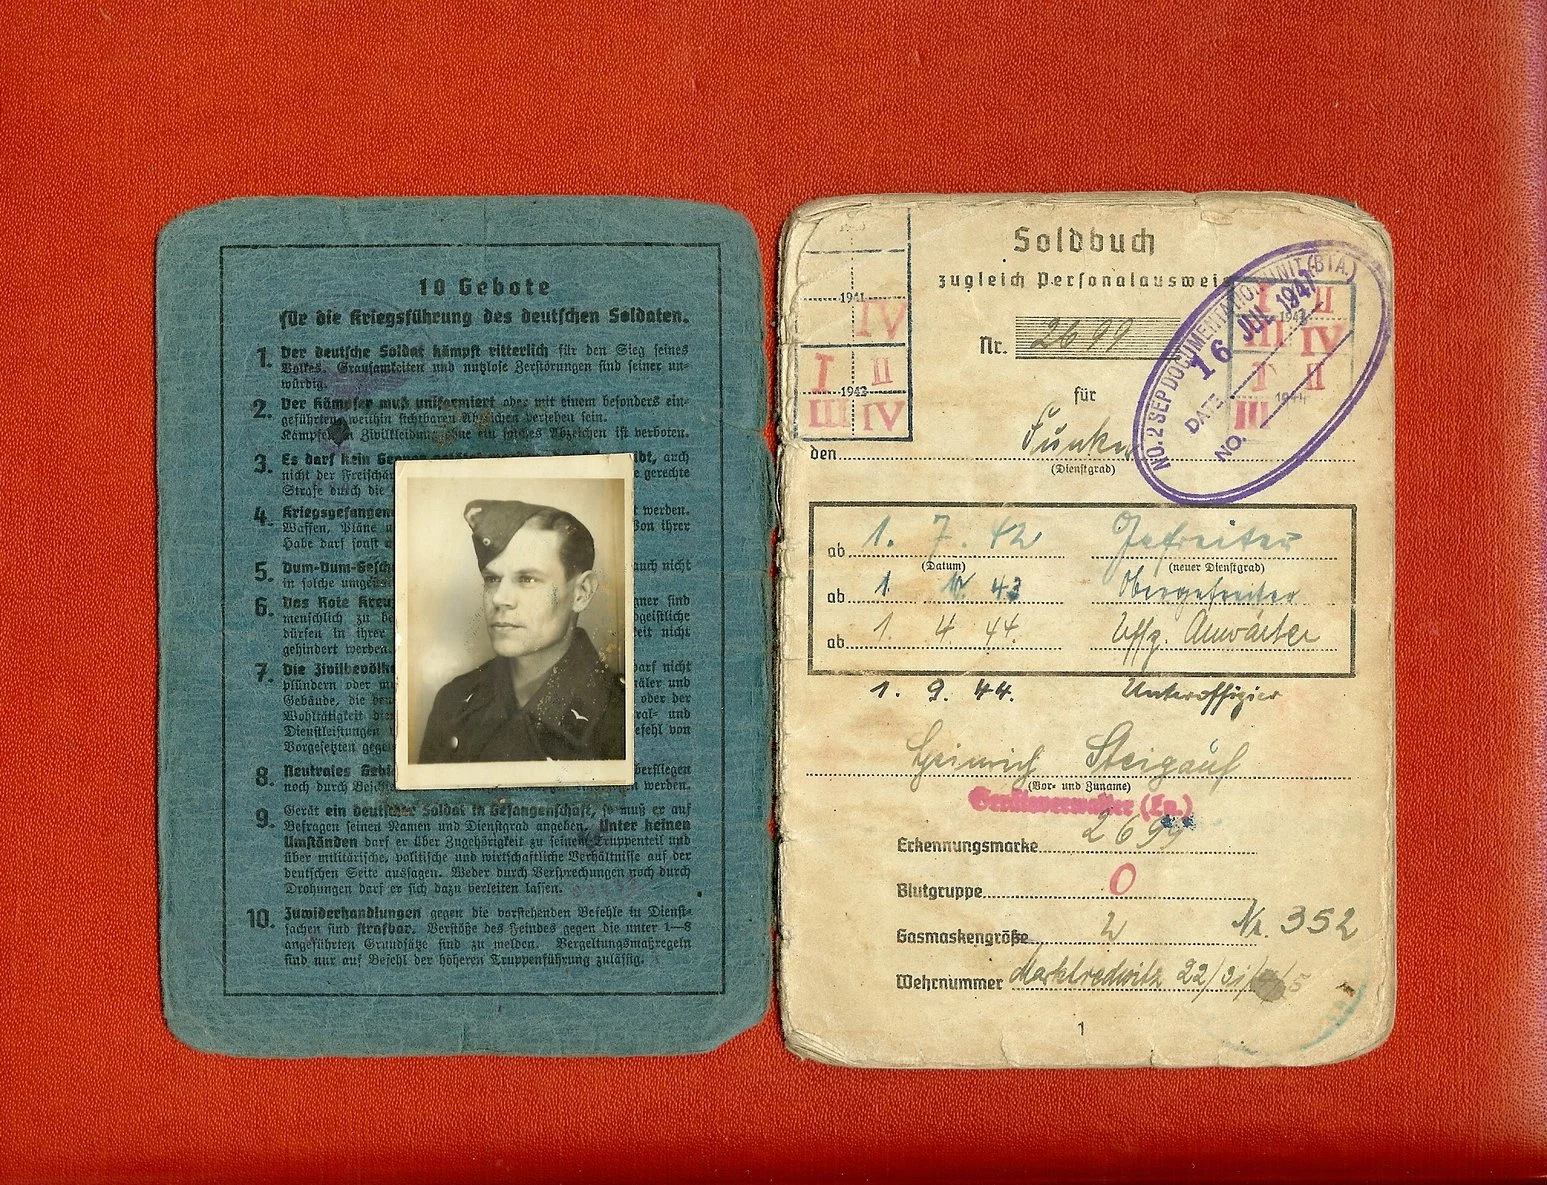 10 Gebote
für die Kriegsführung des deutschen Soldaten.
1. Der deutsche Soldat kämpft ritterlich für den Sieg seines
Volkes. Grausamkeiten und nutzlose Zerstörungen sind seiner un-
würdig.
2. Der Kämpfer muß uniformiert oder mit einem besonders ein-
geführten, weithin sichtbaren Abzeichen versehen sein.
Kämpfen in Zivilkleidung ohne ein solches Abzeichen ist verboten.
3. Es darf kein Gegner getötet, auch
nicht der Freischä gerechte
Strafe durch die
4. Kriegsgefangen werden.
Waffen, Pläne u Von ihrer
Habe darf sonst
5. Dum-Dum-Gesch auch nicht
in solche umge
6. Das Rote Kreuz gner sind
menschlich zu be geistliche
dürfen in ihrer eit nicht
gehindert werden.
7. Die Zivilbevölke darf nicht
plündern oder mu äler und
Gebäude, die de oder der
Wohltätigkeit die ral- und
Dienstleistungen efehl von
Vorgesetzten gege
8. Neutrales Gebie erfliegen
noch durch Besch werden.
9. Gerät ein deutscher Soldat in Gefangenschaft, so muß er auf
Befragen seinen Namen und Dienstgrad angeben. Unter keinen
Umständen darf er über Zugehörigkeit zu seinem Truppenteil und
über militärische, politische und wirtschaftliche Verhältnisse auf der
deutschen Seite aussagen. Weder durch Versprechungen noch durch
Drohungen darf er sich dazu verleiten lassen.
10. Zuwiderhandlungen gegen die vorstehenden Befehle in Dienst-
sachen sind strafbar. Verstöße des Feindes gegen die unter 1—8
angeführten Grundsätze sind zu melden. Vergeltungsmaßregeln
sind nur auf Befehl der höheren Truppenführung zulässig.
Soldbuch
zugleich Personalausweis
Nr. 2699
für
1941
IV
I II
1942
III IV
I II
1943
III IV
I II
1944
III
NO. 2 SEP DOCUMENTATION UNIT (BTA.)
16 JUL 1947
DATE
NO.
den Funker
(Dienstgrad)
ab 1. 7. 42 Gefreiter
(Datum) (neuer Dienstgrad)
ab 1. 43 Obergefreiter
ab 1. 4. 44. Uffz. Anwärter
1. 9. 44. Unteroffizier
Heinrich Steigauf
(Vor- und Zuname)
Geräteverwalter (Ln.)
Erkennungsmarke 2699
Blutgruppe 0
Gasmaskengröße 2 Nr. 352
Wehrnummer Marktredwitz 22/31/
1